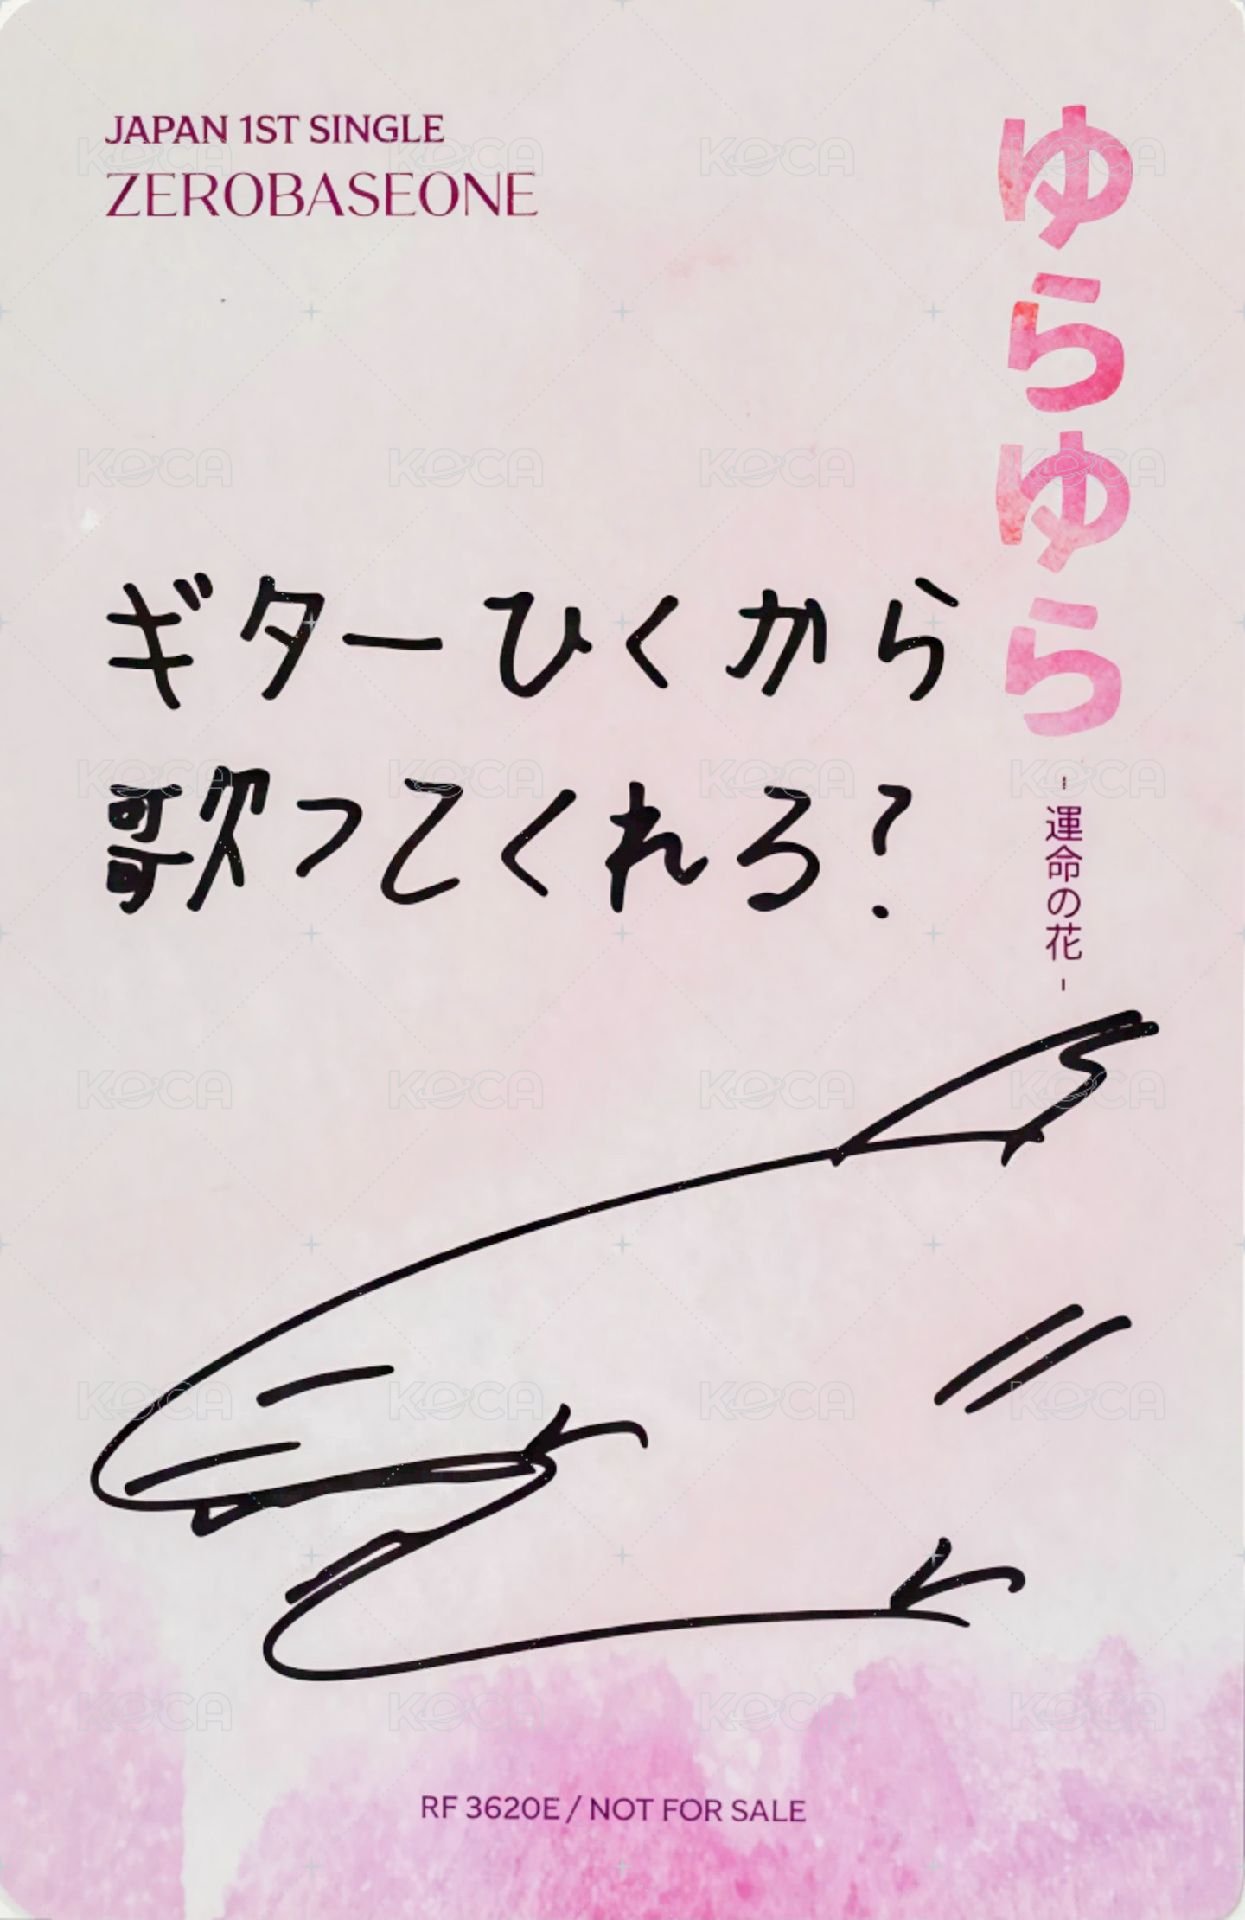 JAPAN 1ST SINGLE
ZEROBASEONE
ゆらゆら
- 運命の花 -
ギターひくから
歌ってくれる?
RF 3620E / NOT FOR SALE
KOCA